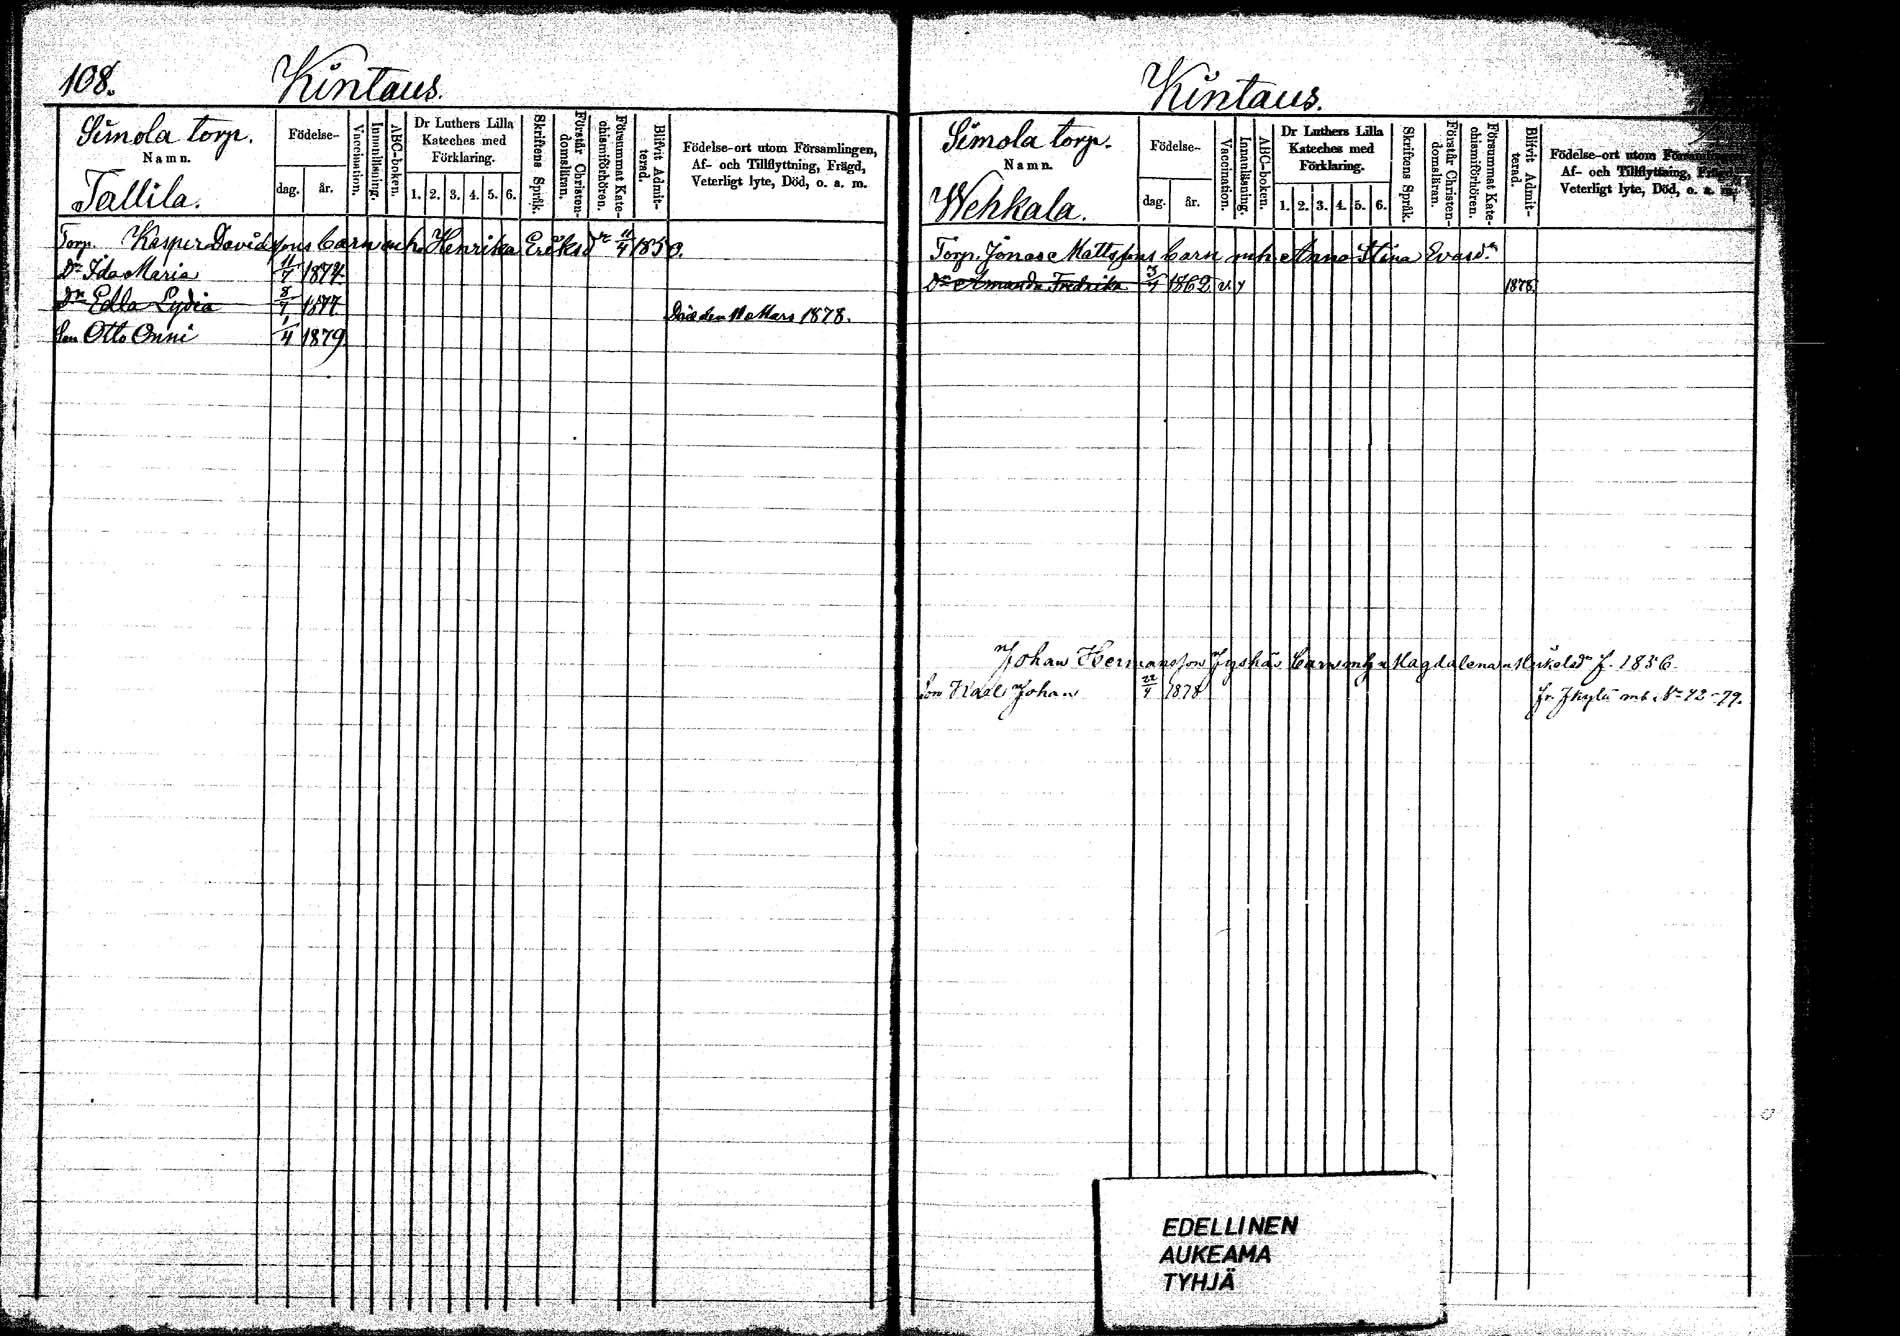 108.
Kintaus.
Simola torp.
Namn.
Tallila.
Födelse-
dag. år.
Vaccination.
Innanläsning.
ABC-boken.
Dr Luthers Lilla
Kateches med
Förklaring.
1. 2. 3. 4. 5. 6.
Skriftens Språk.
Förstår Christen-
domsläran.
Försummat Kate-
chismiförhören.
Blifvit Admit-
terad.
Födelse-ort utom Församlingen,
Af- och Tillflyttning, Frägd,
Veterligt lyte, Död, o. a. m.
Torp. Kasper Davidssons barn m h Henrika Eriksdr 11/4 1850.
Dr Ida Maria 11/7 1874.
Dr Edla Lydia 8/7 1877.
Död den 11 Mars 1878.
Son Otto Onni 1/4 1879.
Kintaus.
Simola torp.
Namn.
Wehkala.
Födelse-
dag. år.
Vaccination.
Innanläsning.
ABC-boken.
Dr Luthers Lilla
Kateches med
Förklaring.
1. 2. 3. 4. 5. 6.
Skriftens Språk.
Förstår Christen-
domsläran.
Försummat Kate-
chismiförhören.
Blifvit Admit-
terad.
Födelse-ort utom Församlingen,
Af- och Tillflyttning, Frägd,
Veterligt lyte, Död, o. a. m.
Torp. Jonas Mattssons barn mh. Anna Stina Evasd.
Dr Amanda Fredrika 3/7 1862 v. y 1878.
Johan Hermansson barn Magdalena f. 1856.
Son Karl Johan 22/4 1878 fr. mb. 79.
EDELLINEN
AUKEAMA
TYHJÄ